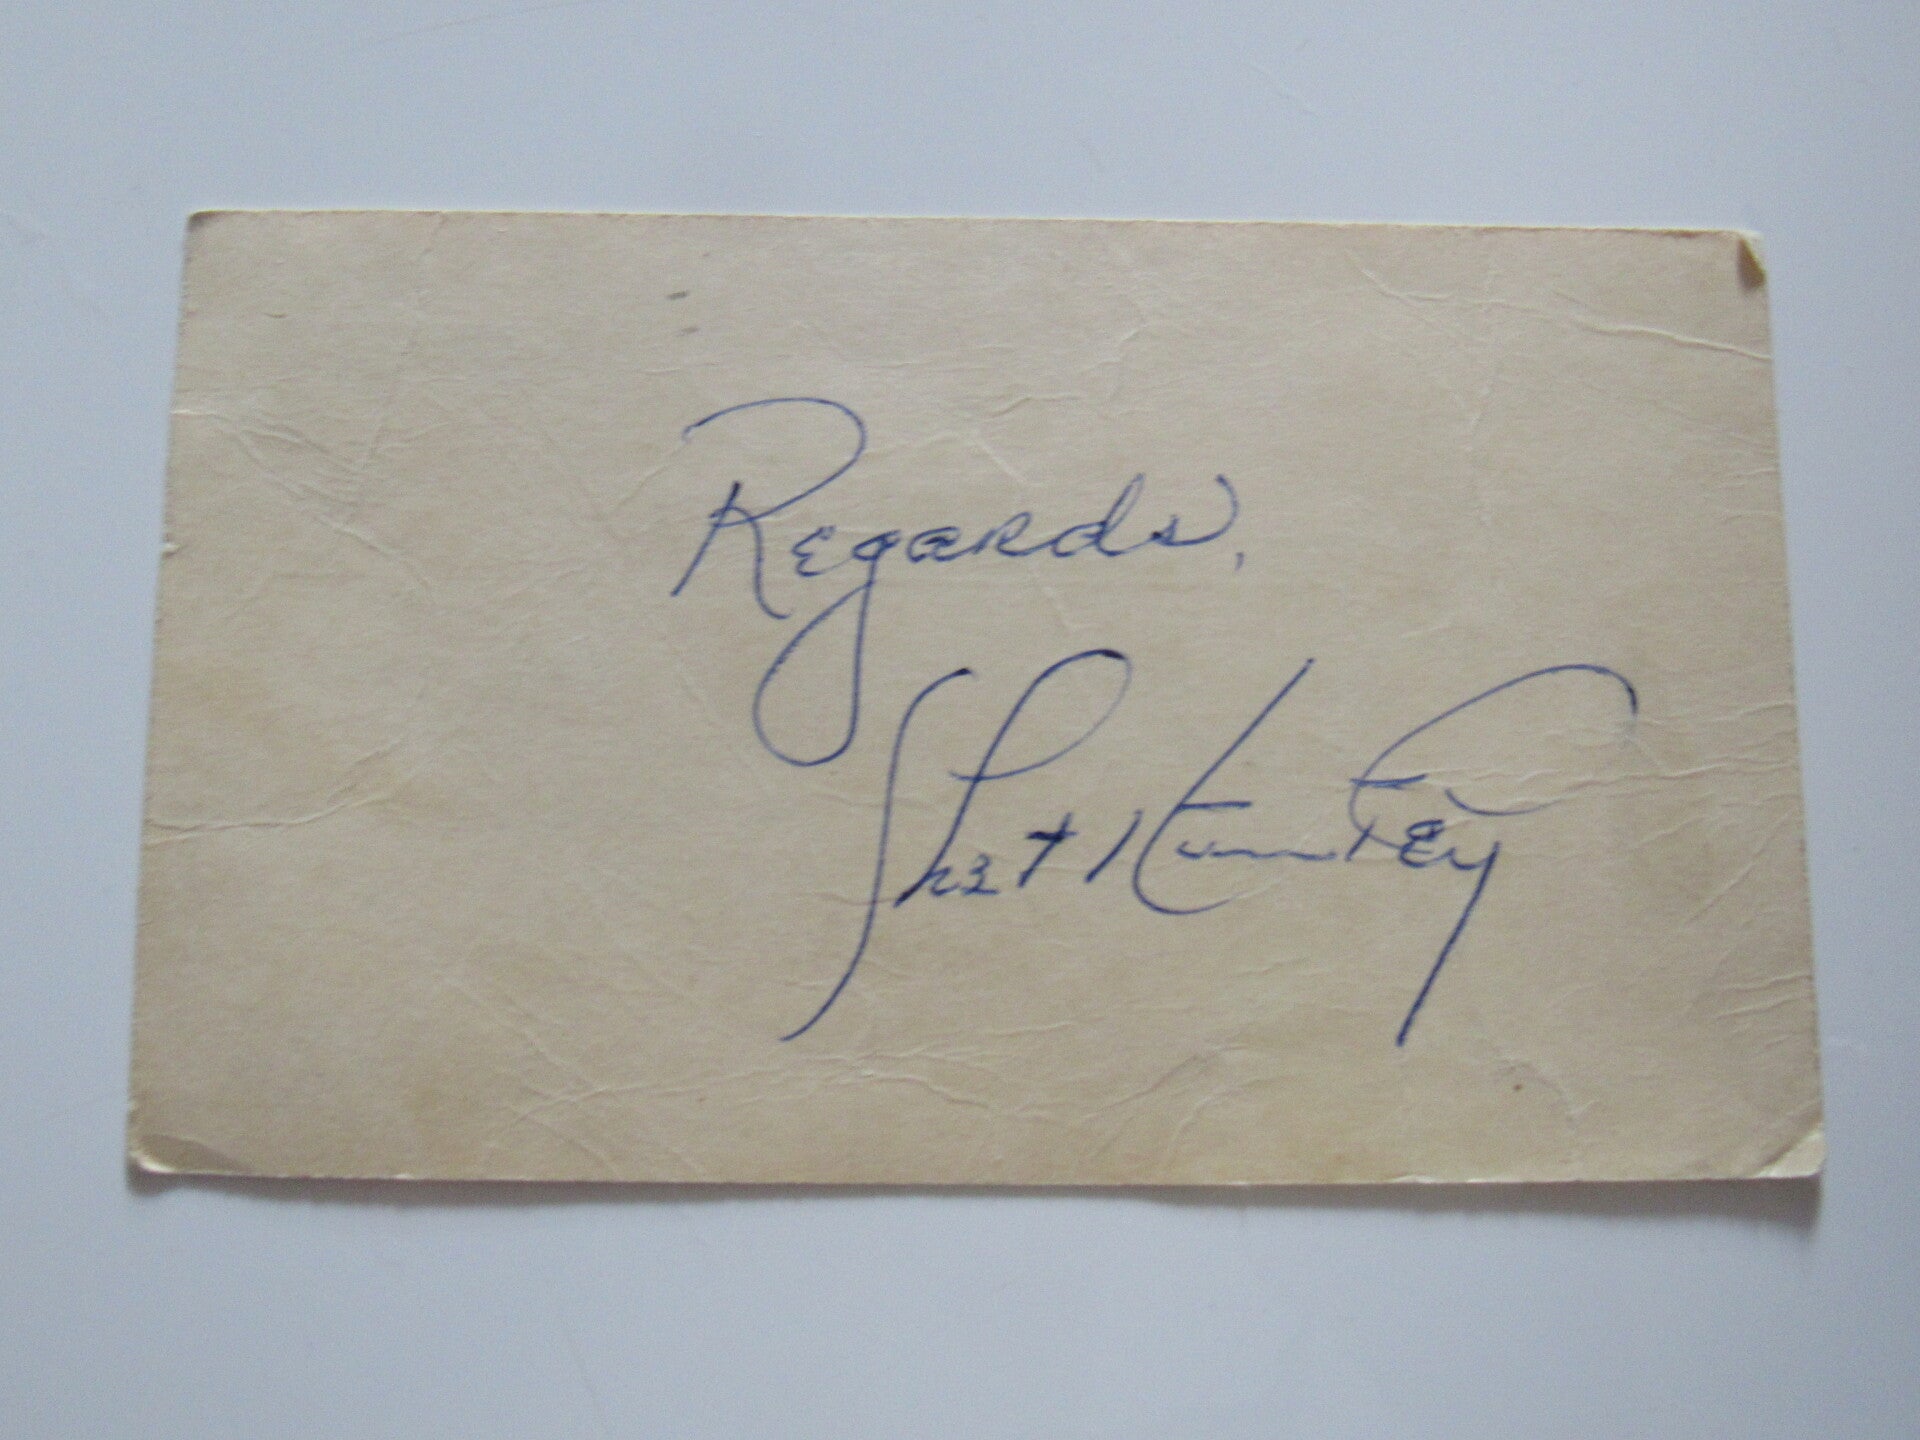 Regards,
Chet Huntley